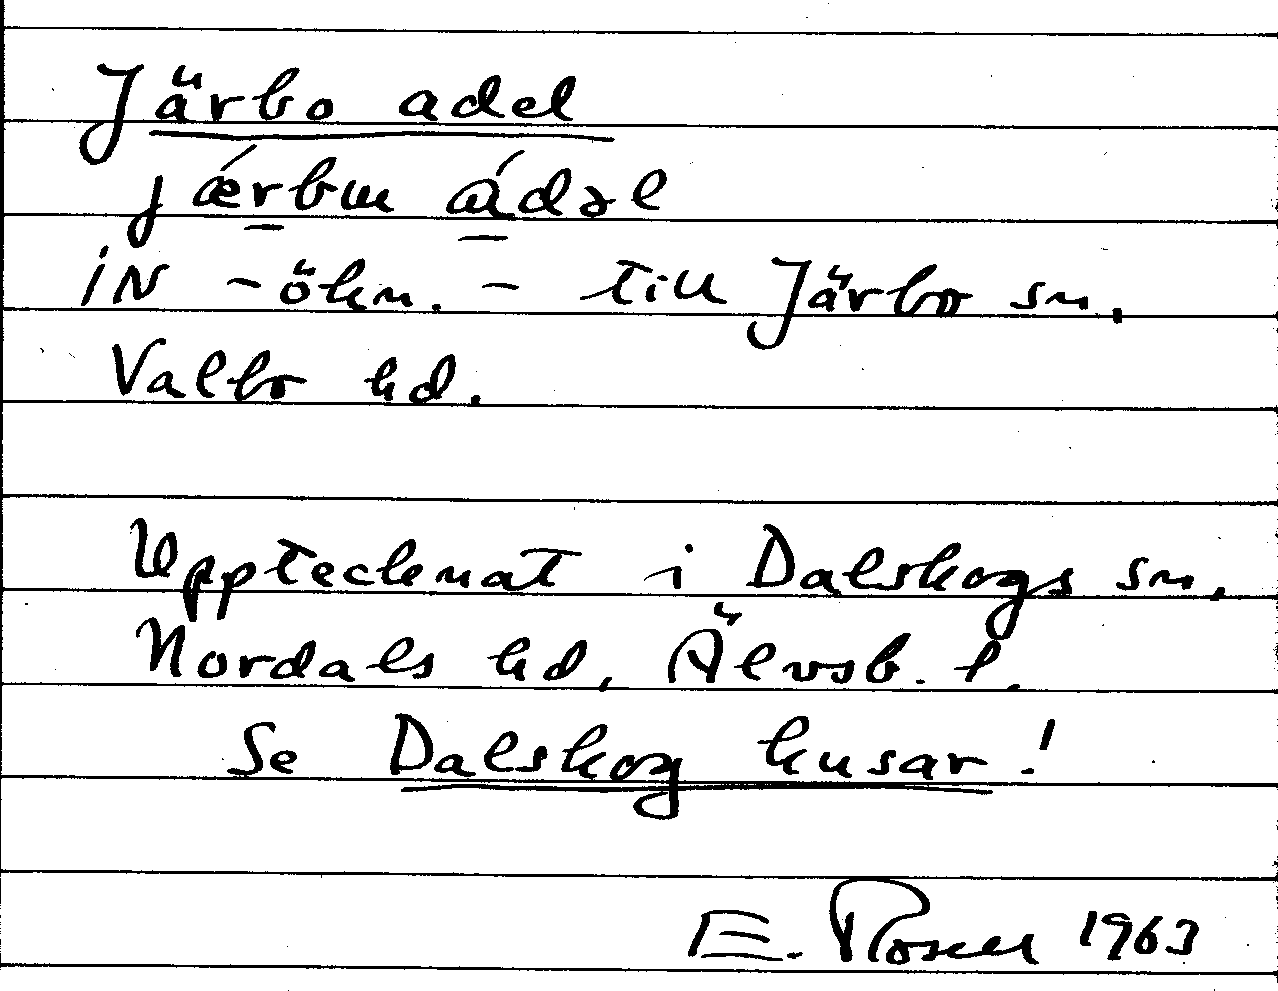 Järbo adel
jǽrbɯ ádəl
iN - ökn. - till Järbo sn.
Valbo hd.
Upptecknat i Dalskogs sn,
Nordals hd, Älvsb. l.
Se Dalskog husar!
E. Rosen 1963